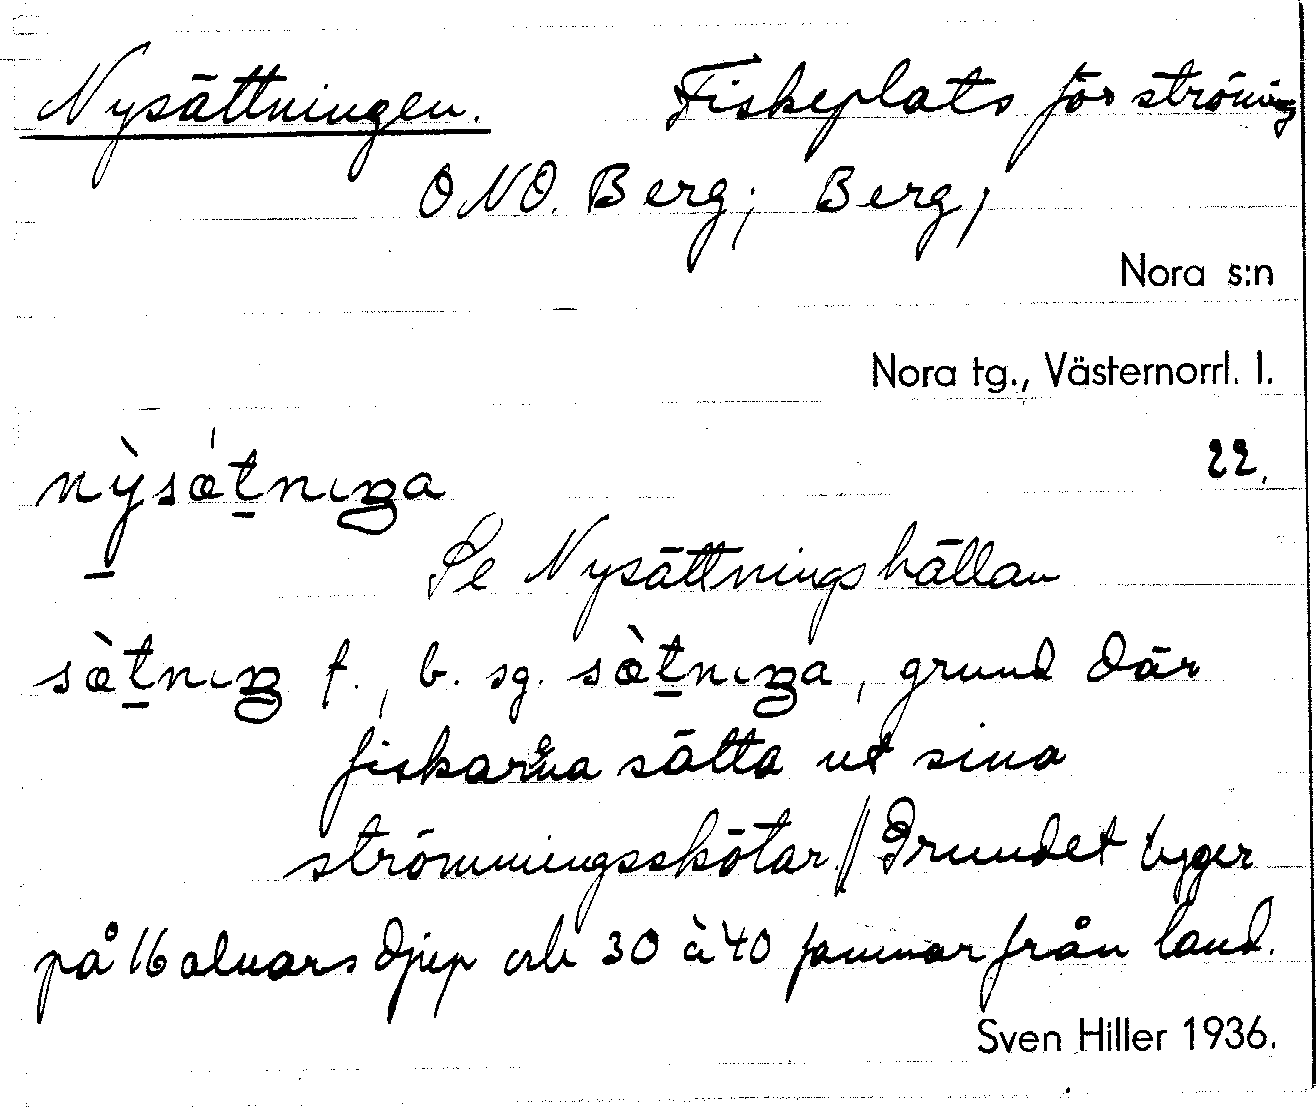 Nysättningen. Fiskeplats för strömming
ONO. Berg; Berg;
Nora s:n
Nora tg., Västernorrl. l.
nỳsætnıŋa 22.
Se Nysättningshällan
sæ̀tnıŋ f., b. sg. sæ̀tnıŋa, grund där
fiskarna sätta ut sina
strömmingsskötar. // Grundet ligger
på 16 alnars djup och 30 à 40 famnar från land.
Sven Hiller 1936.